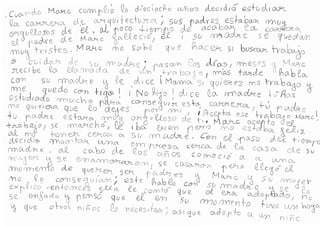 Cuando Marc cumplió lo dieciocho años decidió estudiar
la carrera de arquitectura; sus padres estaban muy
orgullosos de él. al poco tiempo de acabar la carrera
el padre de Marc falleció, él i su madre se quedan
muy tristes. Marc no sabe qué hacer si buscar trabajo
o cuidar de su madre; pasan los días, meses y Marc
recibe la llamada de un trabajo, más tarde habla
con su madre y le dice Mamá si quieres no trabajo y
me quedo contigo! ¡No hijo! dice la madre has
estudiado mucho para conseguir esta carrera, tú padre
no quisiera que lo dejes por mi. ¡Acepta ese trabajo Marc!
tu padre estara muy orgulloso de ti. Marc acepto el
trabajo, se marchó, le iba bien pero no estaba feliz
al no tener cerca a su madre. Con el paso del tiempo
decide montar una empresa cerca de la casa de su
madre, al cabo de los años conoció a a una
mujer y se enamoraron, se casaron pero llegó el
momento de querer ser padres y Marc y su mujer
no lo conseguían; este hablo con su madre y se lo
explico entonces ella le contó que el era adoptado, no
se enfado y pensó que él en su momento tuvo un hogar
y que otros niños lo necesitan; porque adopto a un niño